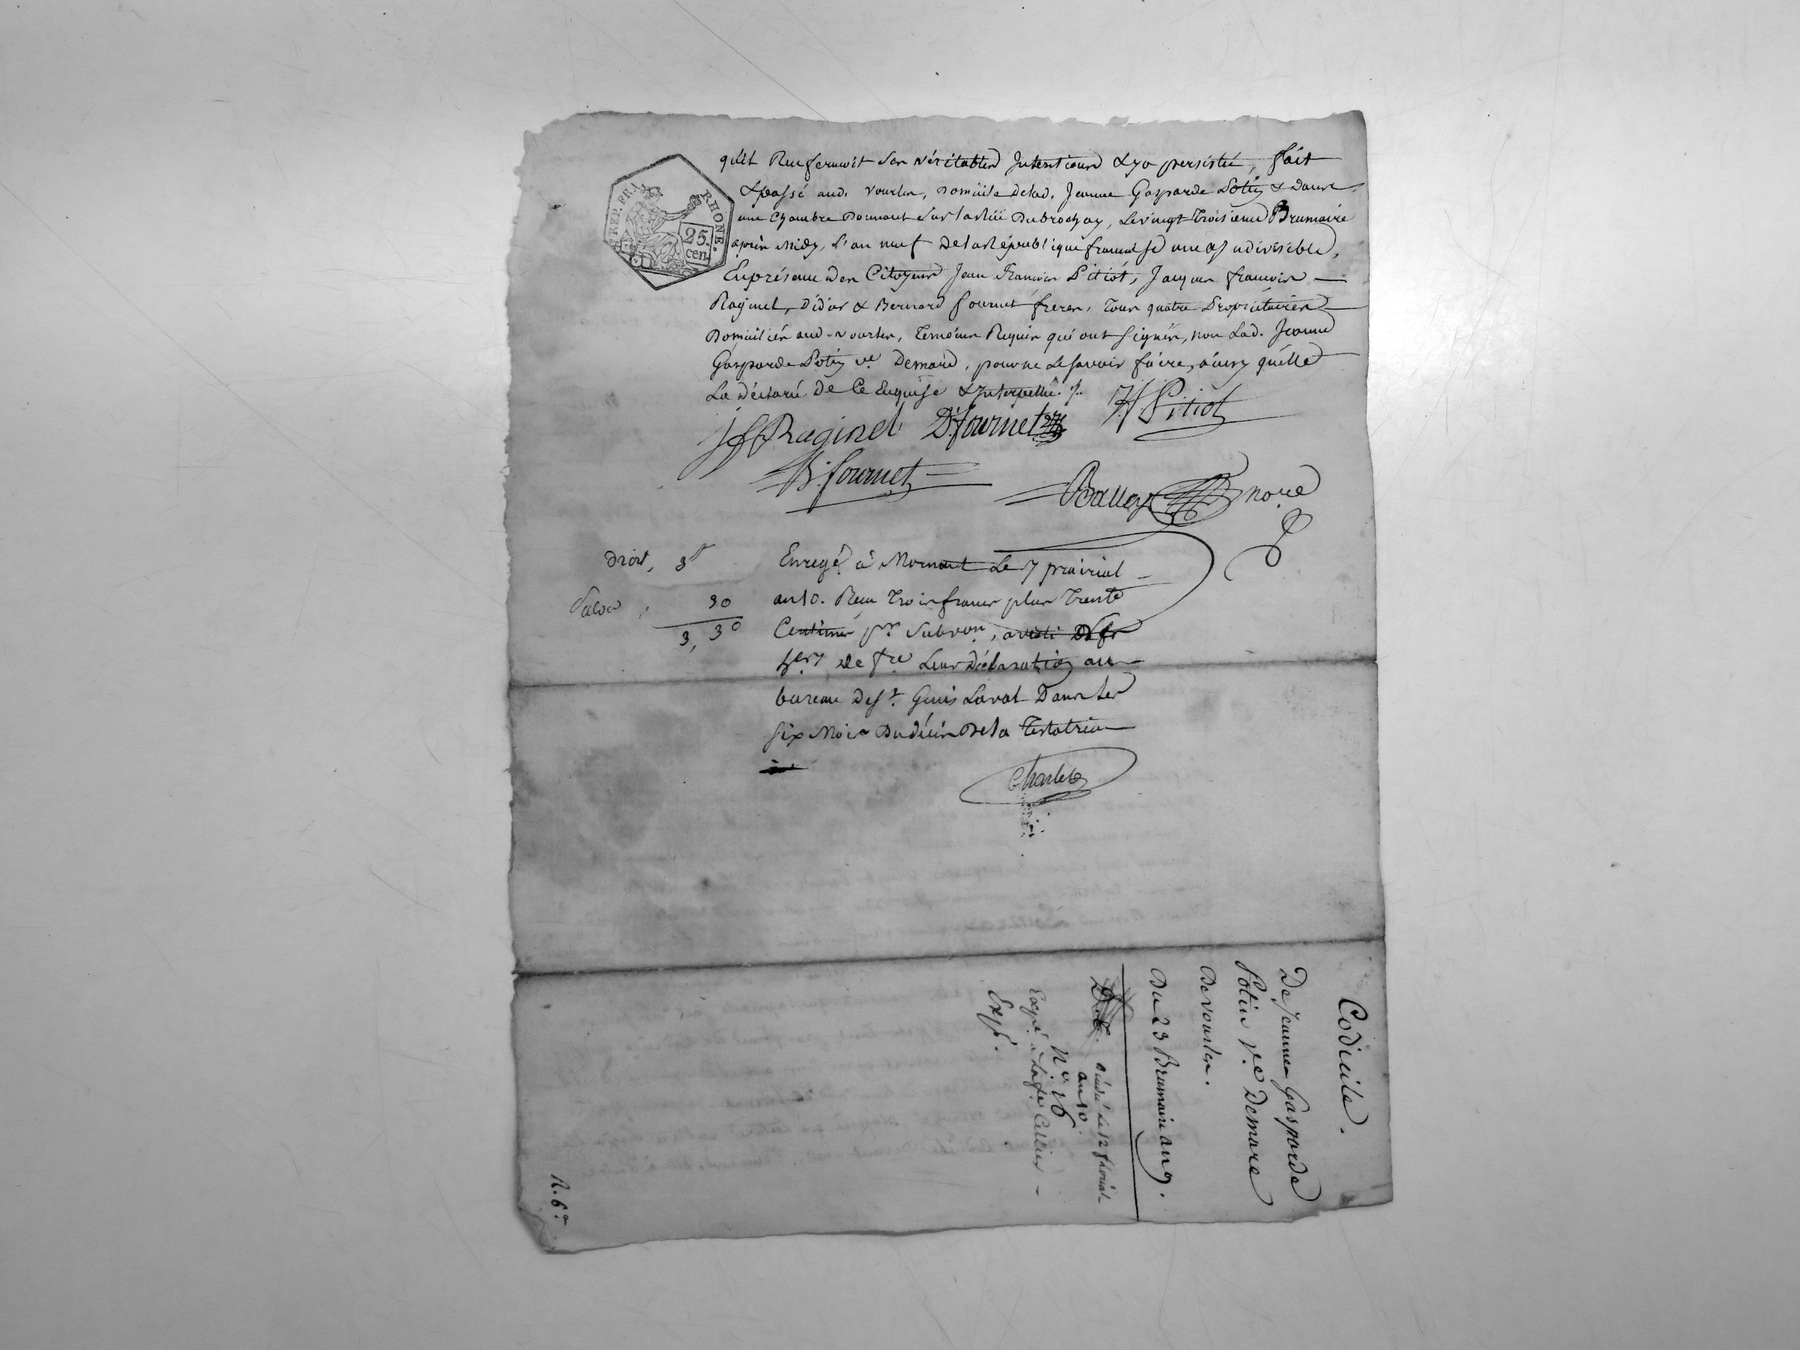 REP. FRA.
RHONE.
25.
cen.
qu'il Renfermoit Ses véritables Intentions & y a persisté, fait
& passé aud. vourles, Domicile de lad. Jeanne Gasparde Potin & dans
une Chambre Donnant Sur la Rüe Dubrochay, Le vingt Troisieme Brumaire
après midy, L'an neuf De la République francaise une & Indivisible,
En présence des Citoyens Jean francois Pitiot, Jacques francois
Raginel, Didier & Bernard fournet freres, Tous quatre Propriétaires
Domiciliés aud. vourles, Temoins Requis qui ont Signés, non Lad. Jeanne
Gasparde Potin ve. Demare, pour ne Le Savoir faire, ainsy qu'elle
La déclaré de Ce Enquise & Interpellée
jf Raginel D. fournet jf Pitiot
B. fournet
Balley nore
Droit, 3
30
3, 30
Enregé. à Mornant Le 7 prairial
an 10. Recu Trois francs plus Trente
Centimes pr. Subvon,
de fre Leur Déclaration au
bureau de St. Genis Laval Dans les
six Mois Du décès De la Testatrice
Charlet
Codicile.
De Jeanne Gasparde
Potin ve. Demare
De vourles.
Du 23 Brumaire an 9.
Décédé Le 12 floréal
an 10.
No. 16
Exp.
R. 6